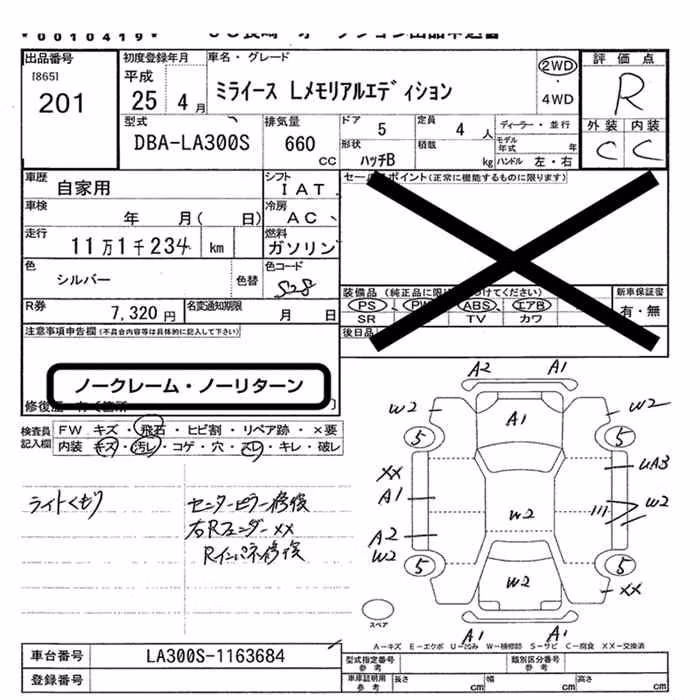 *0010419*
出品番号
[865]
201
初度登録年月
平成
25年 4月
車名・グレード
ミライース Lメモリアルエディション
2WD
4WD
評価点
R
外装 内装
C C
型式
DBA-LA300S
排気量
660
CC
ドア
5
定員
4人
形状
ハッチB
積載
kg
ディーラー・並行
モデル年式 年
ハンドル 左・右
車歴
自家用
シフト
IAT
車検
年 月( 日)
冷房
AC
走行
11万1千234 km
燃料
ガソリン
色
シルバー
色替
色コード
S28
R券
7,320円
名変通知期限
月 日
セールスポイント(正常に機能するものに限ります)
PS ABS エアB
SR TV カワ
新車保証書
有・無
後日品
注意事項申告欄(不具合内容等は具体的に記入して下さい)
ノークレーム・ノーリターン
検査員記入欄
FW キズ・飛石・ヒビ割・リペア跡・×要
内装 キズ・汚レ・コゲ・穴・スレ・キレ・破レ
ライトくもり
センターピラー修復
右Rフェンダー××
Rインパネ修復
A2 A1
W2 A1 W2
5 5
XX UA3
A1 W2
A2 W2
W2
5 W2 5
XX
A1 A1
スペア
A-キズ E-エクボ U-凹み W-補修跡 S-サビ C-腐食 XX-交換済
車台番号
LA300S-1163684
登録番号
型式指定番号参考
類別区分番号参考
車庫証明用参考
長さ cm 幅 cm 高さ cm